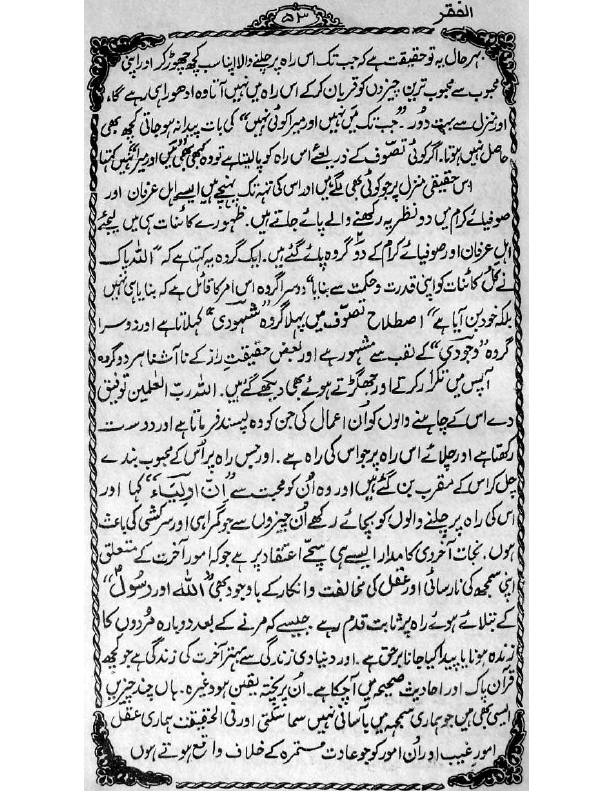 الفقر
۵۳
بہرحال یہ تو حقیقت ہے کہ جب تک اس راہ پر چلنے والا اپنا سب کچھ چھوڑ کر اور اپنی
محبوب سے محبوب ترین چیزوں کو قربان کرکے اس راہ میں نہیں آتا وہ ادھورا ہی رہے گا،
اور منزل سے بہت دُور۔ "جب تک مَیں نہیں اور میرا کوئی نہیں" کی بات پیدا نہ ہو جاتی کچھ بھی
حاصل نہیں ہوتا۔ اگر کوئی تصوّف کے ذریعے اس راہ کو پالیتا ہے تو وہ کبھی بھی "میں اور میرا" نہیں کہتا
اس حقیقی منزل پر جو کوئی بھی گئے ہیں اور اس کی تہہ تک پہنچے ہیں ایسے اہل عرفان اور
صوفیائے کرام میں دو نظریہ رکھنے والے پائے جاتے ہیں۔ ظہورے کائنات ہی میں لیجئے
اہل عرفان اور صوفیائے کرام کے دو گروہ پائے گئے ہیں۔ ایک گروہ یہ کہتا ہے کہ "اللہ پاک
نے کُل کائنات کو اپنی قدرت و حکمت سے بنایا" دوسرا گروہ اس امر کا قائل ہے کہ بنایا ہی نہیں
بلکہ خود بن آیا ہے" اصطلاح تصوّف میں پہلا گروہ "شہودی" کہلاتا ہے اور دوسرا
گروہ "وجودی" کے لقب سے مشہور ہے اور بعض حقیقتِ راز کے ناآشنا ہر دو گروہ
آپس میں تکرار کرتے اور جھگڑتے ہوئے بھی دیکھے گئے ہیں۔ اللہ ربّ العلمین توفیق
دے اس کے چاہنے والوں کو اُن اعمال کی جن کو وہ پسند فرماتا ہے اور دوست
رکھتا ہے اور چلائے اس راہ پر جو اس کی راہ ہے۔ اور جس راہ پر اُس کے محبوب بندے
چل کر اس کے مقرب بن گئے ہیں اور وہ اُن کو محبت سے "اِنَّ اولیَاء" کہا اور
اس کی راہ پر چلنے والوں کو بچائے رکھے اُن چیزوں سے جو گمراہی اور سرکشی کی باعث
ہوں۔ نجات اُخروی کا مدار ایسے ہی سچّے اعتقاد پر ہے جو کہ امورِ آخرت کے متعلق
اپنی سمجھ کی نارسائی اور عقل کی مخالفت و انکار کے باوجود بھی "اللہ اور رسُولؐ"
کے بتلائے ہوئے راہ پر ثابت قدم رہے جیسے کہ مرنے کے بعد دوبارہ مُردوں کا
زندہ ہونا یا پیدا کیا جانا برحق ہے۔ اور دنیاوی زندگی سے بہتر آخرت کی زندگی ہے جو کچھ
قرآن پاک اور احادیثِ صحیحہ میں آچکا ہے۔ اُن پر پختہ یقین ہو وغیرہ۔ ہاں چند چیزیں
ایسی بھی ہیں جو ہماری سمجھ میں بآسانی نہیں سما سکتی اور فی الحقیقت ہماری عقل
امورِ غیب اور اُن امور کو جو عادت مستمرہ کے خلاف واقع ہوتے ہوں